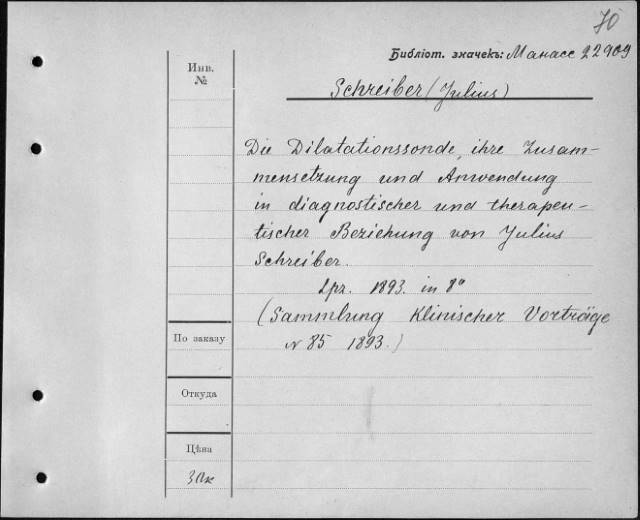 70
Библіот. значекъ: Манасс 22909
Инв.
№
Schreiber (Julius)
Die Dilatationssonde, ihre Zusam-
mensetzung und Anwendung
in diagnostischer und therapeu-
tischer Beziehung von Julius
Schreiber.
Lpz. 1893. in 8°
(Sammlung Klinischer Vorträge
N 85 1893.)
По заказу
Откуда
Цѣна